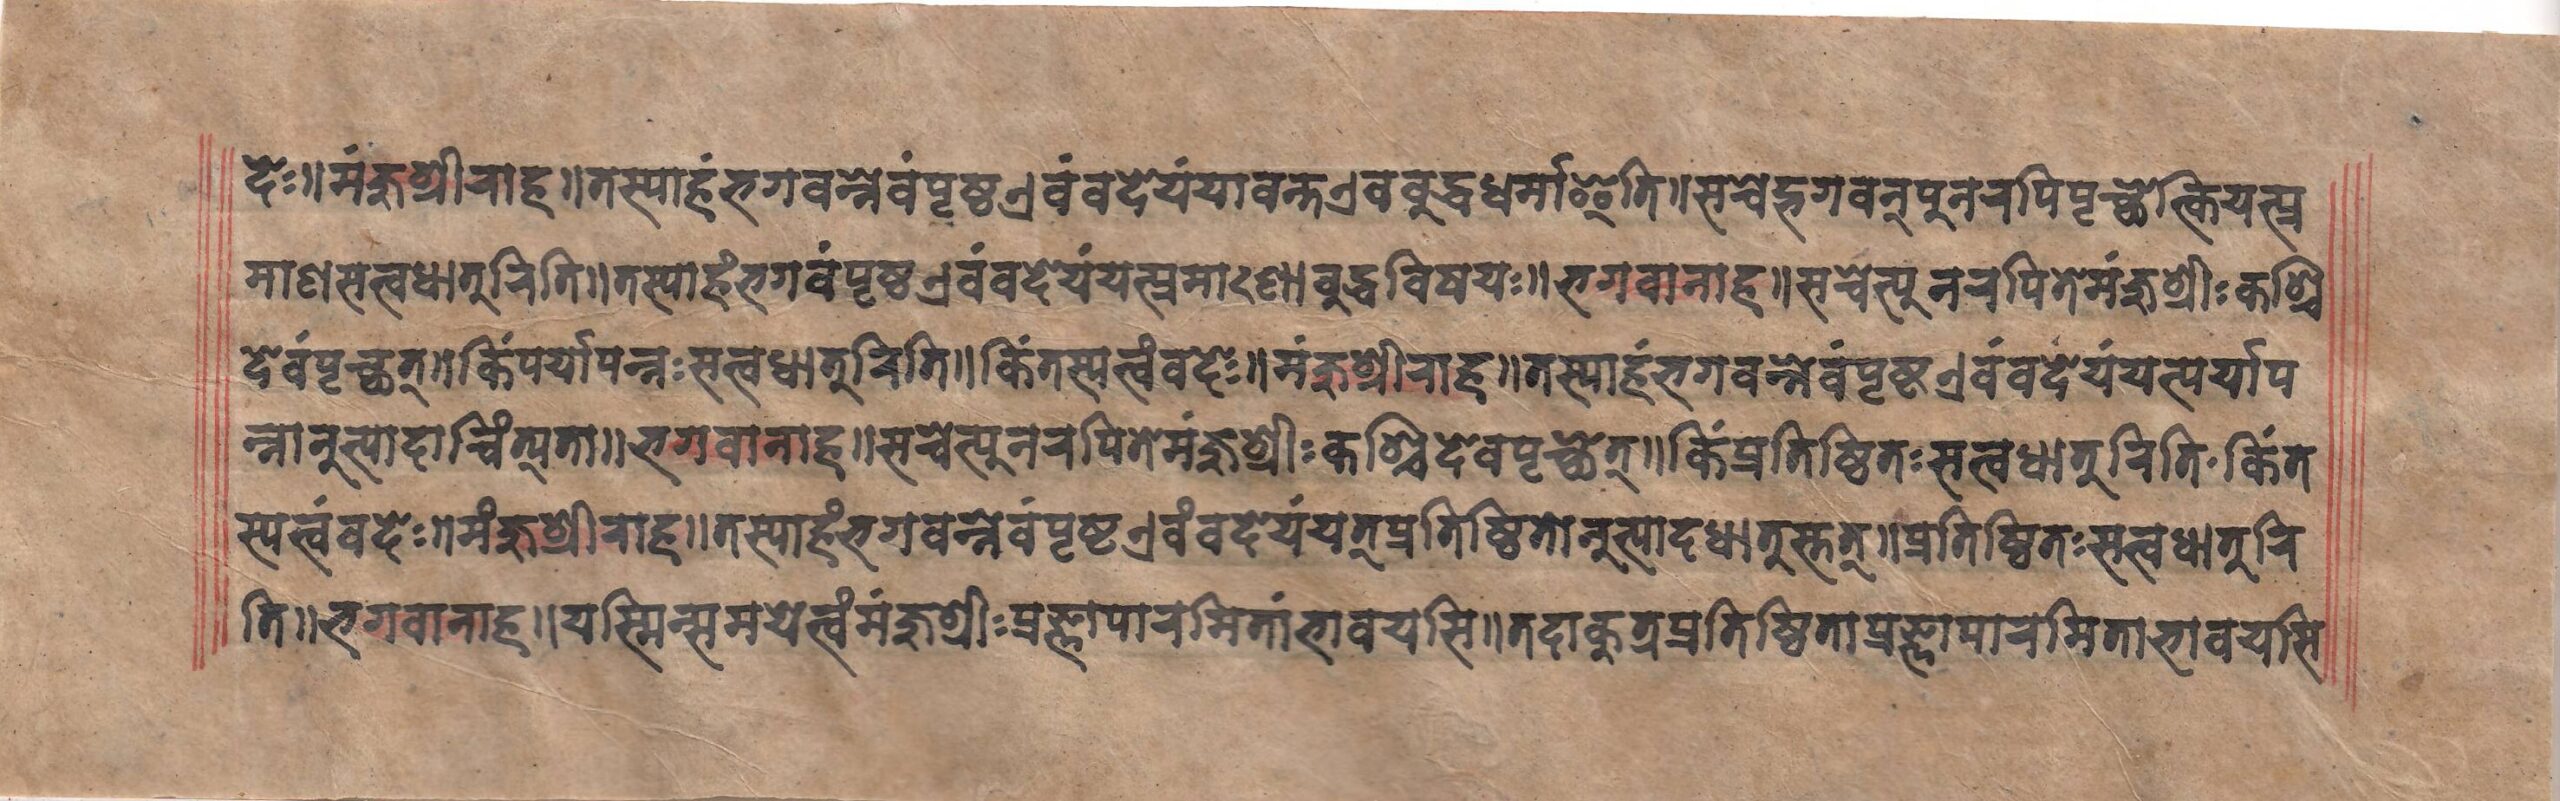 देः॥मंजुश्रीराह॥तस्याहंभगवन्नेवंपृष्ठएवंवदेयंयावन्तएवबुद्धधर्माति॥सचेद्भगवन्पुनरपिपृच्छेत्कियत्प्र
माणसत्वधातुरिति॥तस्याहंभगवंपृष्ठएवंवदेयंयत्प्रमाऽणाबुद्धविषयः॥भगवानाह॥सचेत्पुनरपितेमंजुश्रीःकश्चि
देवंपृच्छत्॥किंपर्यापन्नःसत्वधातुरिति॥किंतस्यत्वंवदेः॥मंजुश्रीराह॥तस्याहंभगवन्नेवंपृष्टएवंवदेयंयत्पर्याप
न्नानुत्पादाचिंत्यता॥भगवानाह॥सचेत्पुनरपितेमंजुश्रीःकश्चिदेवपृच्छेत्॥किंप्रतिष्ठितःसत्वधातुरिति·किंत
स्यत्वंवदेः॥मंजुश्रीराह॥तस्याहंभगवन्नेवंपृष्टएवंवदेयंयत्प्रतिष्ठितोनुत्पादधातुस्तत्॥प्रतिष्ठितःसत्वधातुरि
ति॥भगवानाह॥यस्मिन्समयेत्वंमंजुश्रीःप्रज्ञापारमितांभावयसि॥तदाकुत्रप्रतिष्ठिताप्रज्ञापारमिताभावयसि